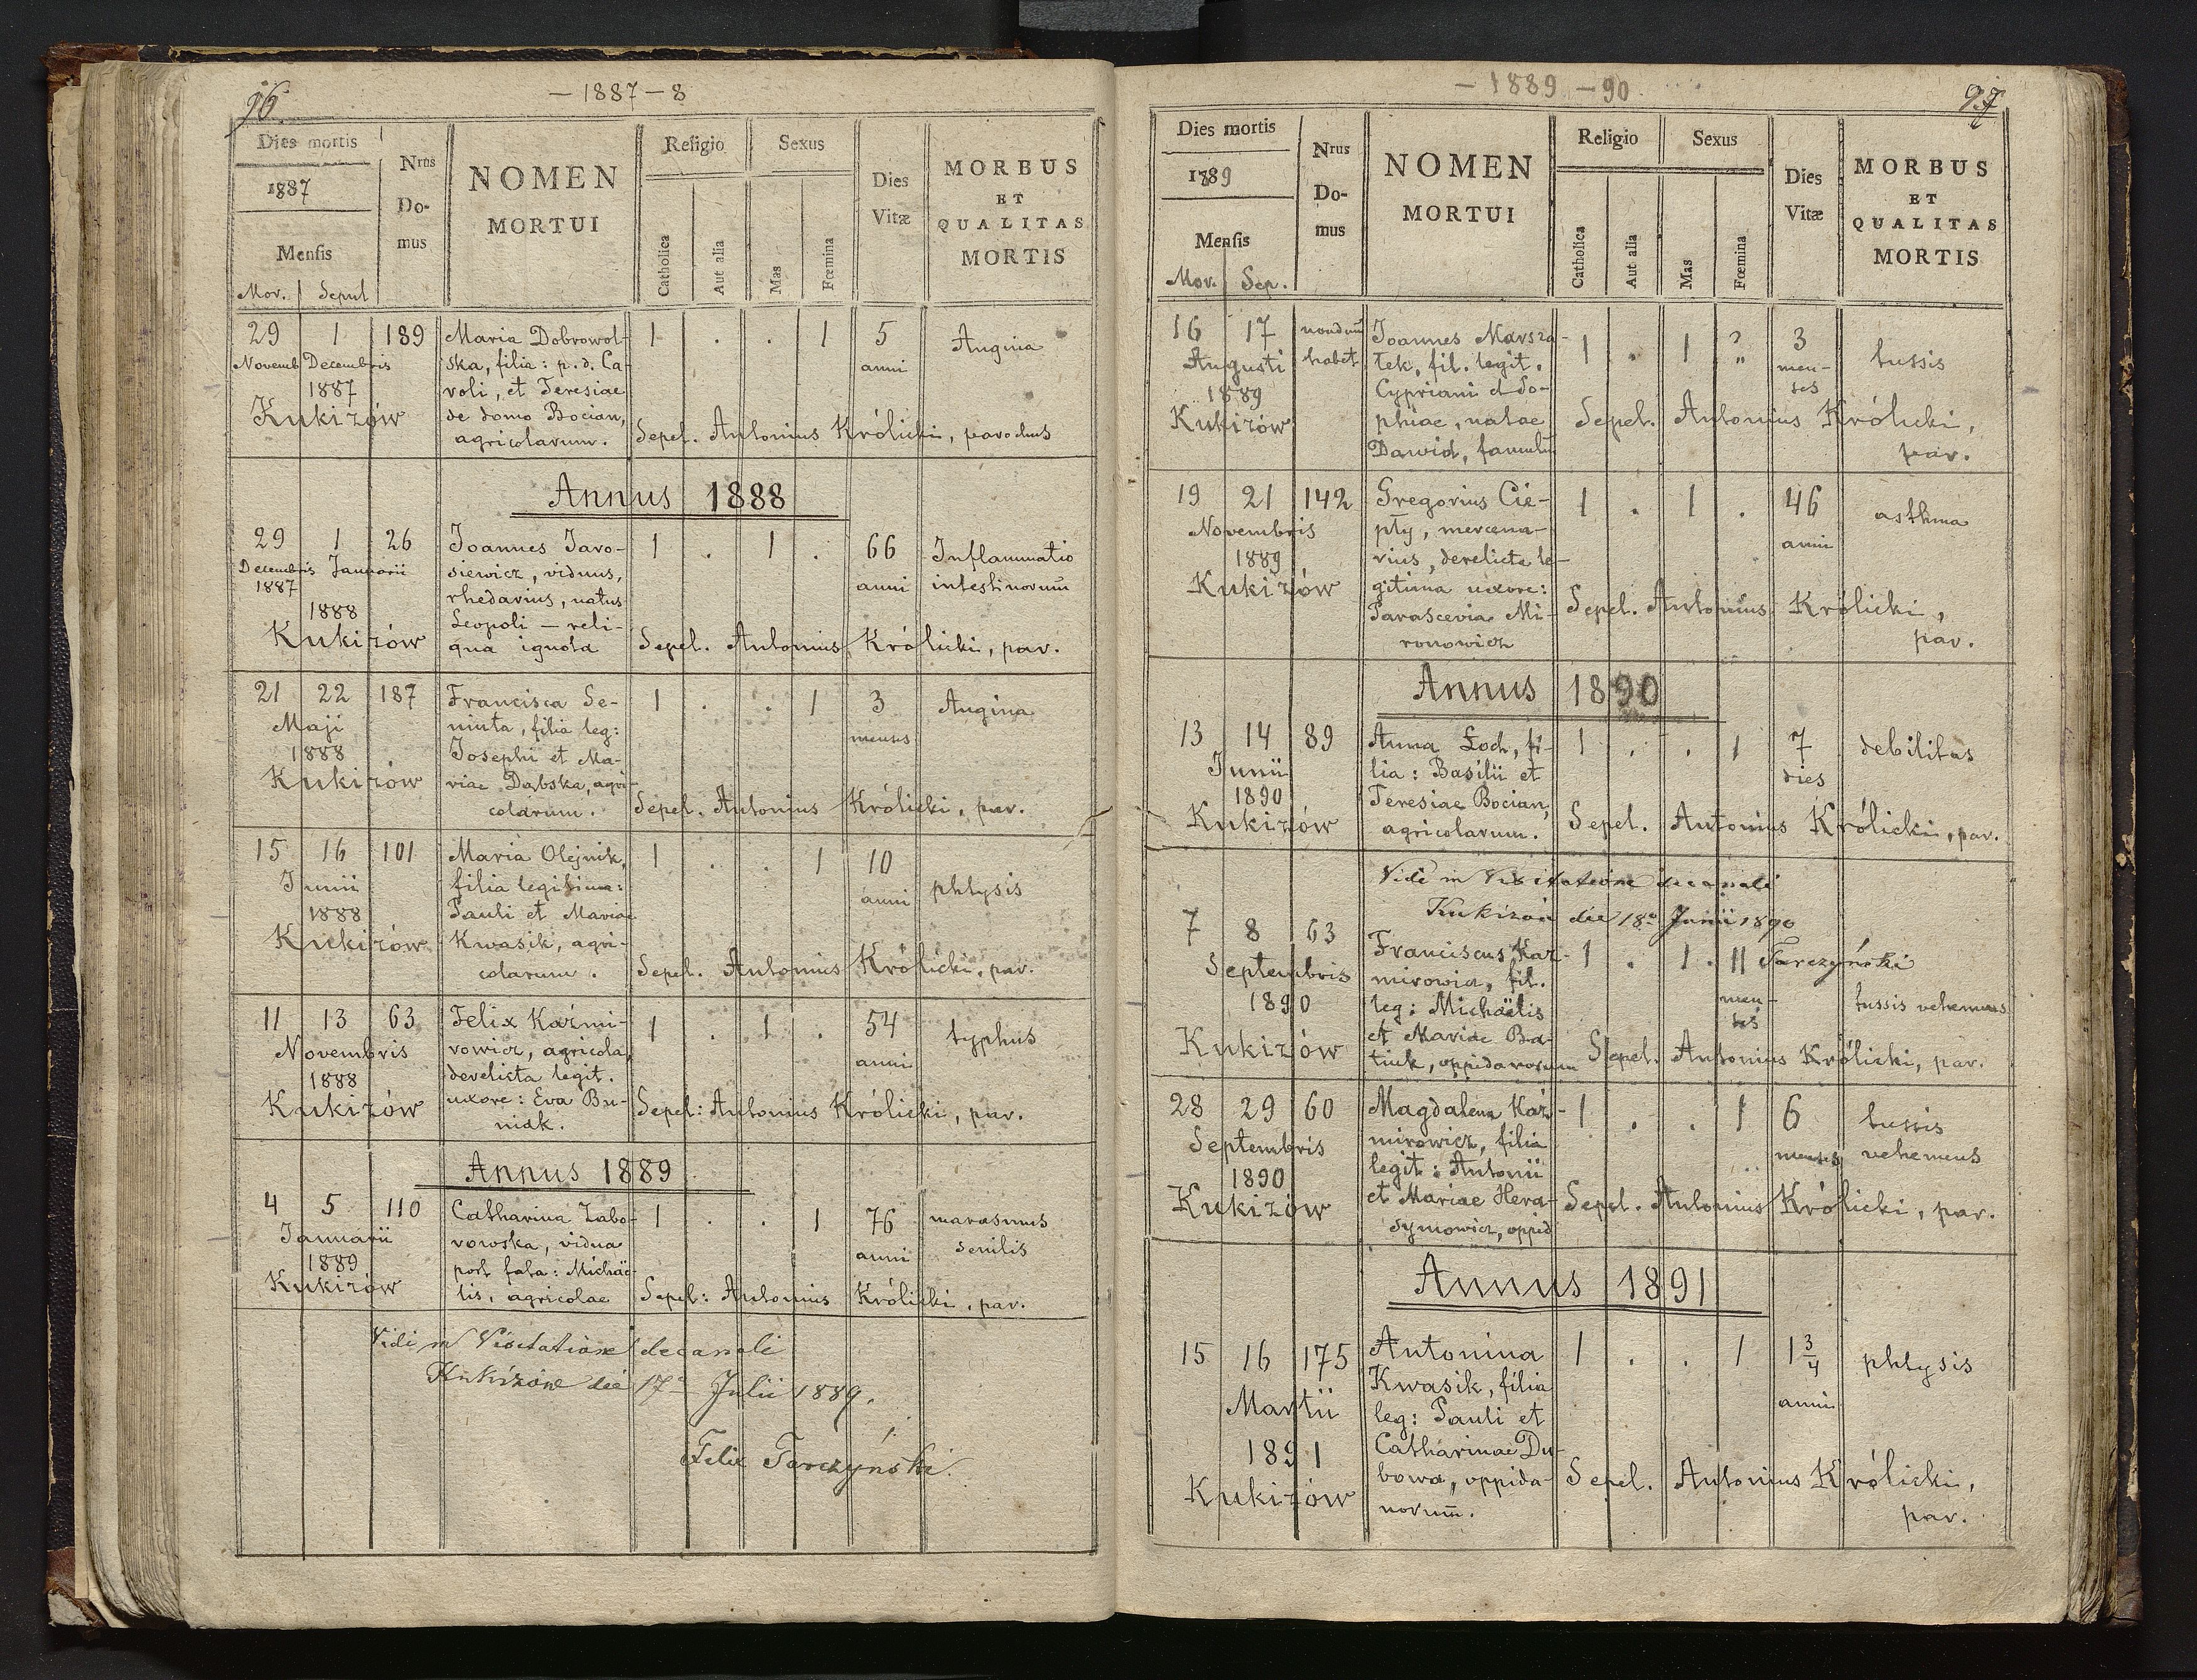 96.
— 1887 — 8
Dies mortis
1887
Mensis
Mov. Sepul
Nrus
Do-
mus
NOMEN
MORTUI
Religio
Catholica
Aut alia
Sexus
Mas
Fœmina
Dies
Vitæ
MORBUS
ET
QUALITAS
MORTIS
29 1 189 Maria Dobrowol- 1 . . 1 5 Angina
Novemb Decembris ska, filia: p. d. Ca- anni
1887 roli, et Teresiae
Kukizów de domo Bocian,
agricolarum. Sepel. Antonius Królicki, parochus
Annus 1888
29 1 26 Joannes Jaro- 1 . 1 . 66 Inflammatio
Decembris Januarii siewicz, viduus, anni intestinorum̄
1887 rhedarius, natus
1888 Leopoli — reli-
Kukizów qua ignota Sepel. Antonius Królicki, par.
21 22 187 Francisca Se- 1 . . 1 3 Angina
Maji niuta, filia leg: menses
1888 Josephi et Ma-
Kukizów riae Dąbska, agri-
colarum. Sepel. Antonius Królicki, par.
15 16 101 Maria Olejnik, 1 . . 1 10 phtysis
Junii filia legitima: anni
1888 Pauli et Mariae
Kukizów Kwasik, agri-
colarum. Sepel. Antonius Królicki, par.
11 13 63 Felix Kaźmi- 1 . 1 . 54 typhus
Novembris rowicz, agricola, anni
1888 derelicta legit.
Kukizów uxore: Eva Bu- Sepel: Antonius Królicki, par.
niak.
Annus 1889
4 5 110 Catharina Zabo- 1 . . 1 76 marasmus
Januarii rowska, vidua anni senilis
1889 post fata: Michaë-
Kukizów lis, agricolae Sepel: Antonius Królicki, par.
Vidi in Visitatione decanali
Kukizów die 17a Julii 1889.
Felix Tarczyński
97
— 1889 — 90
Dies mortis
1889
Mensis
Mov. Sep.
Nrus
Do-
mus
NOMEN
MORTUI
Religio
Catholica
Aut alia
Sexus
Mas
Fœmina
Dies
Vitæ
MORBUS
ET
QUALITAS
MORTIS
16 17 nondum̄ Joannes Marsza- 1 . 1 ? 3 tussis
Augusti habet łek, fil. legit. „ men-
1889 Cypriani et So- ses
Kukizów phiae, natae Sepel. Antonius Królicki,
Dawid, famulū par.
19 21 142 Gregorius Cie- 1 . 1 . 46 asthma
Novembris pły, mercena- anni
1889 rius, derelicta le-
Kukizów gitima uxore:
Parascevia Mi- Sepel. Antonius Królicki,
ronowicz par.
Annus 1890
13 14 89 Anna Łoch, fi- 1 . . 1 7 debilitas
Junii lia: Basilii et dies
1890 Teresiae Bocian,
Kukizów agricolarum. Sepel. Antonius Królicki, par.
Vidi in Visitatione decanali
Kukizów die 18a Junii 1890
7 8 63 Franciscus Kaź- 1 . 1 . 11 Tarczyński
Septembris mirowicz, fil. men-
1890 leg: Michaëlis ses tussis vehemens
Kukizów et Mariae Ba-
tiuk, oppidanorum Sepel. Antonius Królicki, par.
28 29 60 Magdalena Kaź- 1 . . 1 6 tussis
Septembris mirowicz, filia menses vehemens
1890 legit: Antonii
Kukizów et Mariae Hera- Sepel. Antonius Królicki, par.
symowicz, oppid
Annus 1891
15 16 175 Antonina 1 . . 1 1 3/4 phtysis
Martii Kwasik, filia anni
leg: Pauli et
1891 Catharinae Du-
Kukizów bowa, oppida- Sepel. Antonius Królicki,
norum̄. par.